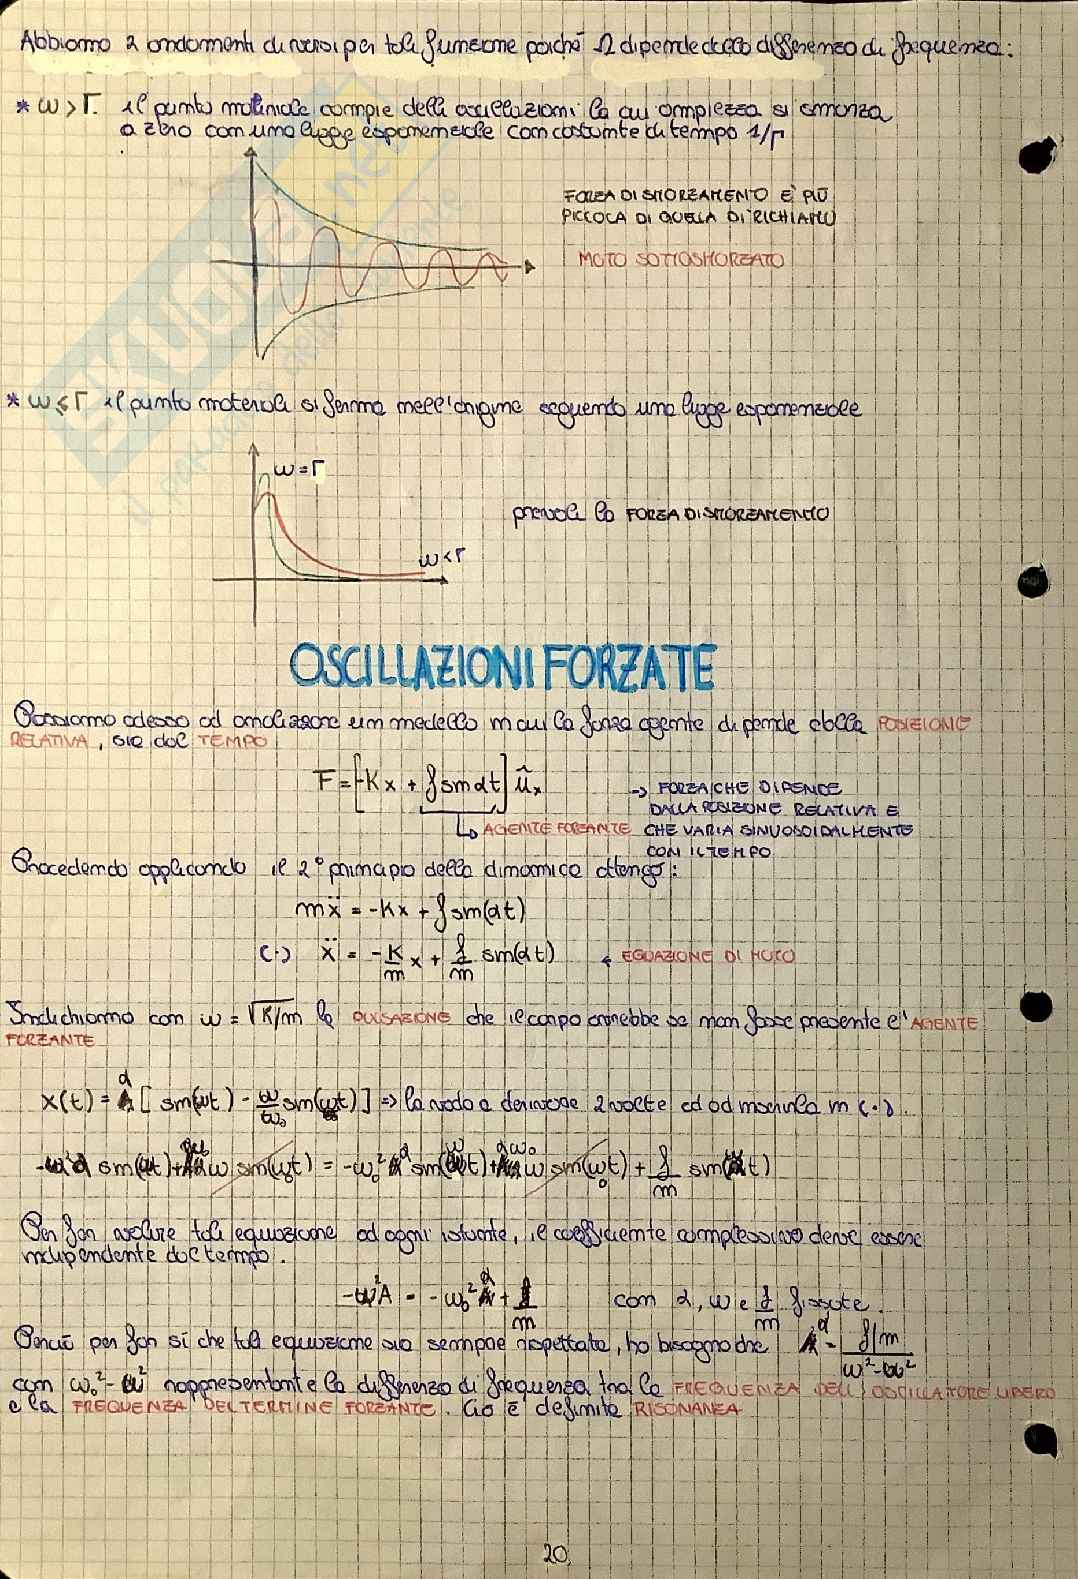 Abbiamo 2 andamenti diversi per tale funzione poiché Ω dipende dalla differenza di frequenza:
* ω > Γ. il punto materiale compie delle oscillazioni la cui ampiezza si smorza
a zero con una legge esponenziale con costante di tempo 1/Γ
FORZA DI SMORZAMENTO E' PIÙ
PICCOLA DI QUELLA DI RICHIAMO
MOTO SOTTOSMORZATO
* ω ≤ Γ il punto materiale si ferma nell'origine seguendo una legge esponenziale
ω = Γ
prevale la FORZA DI SMORZAMENTO
ω < Γ
OSCILLAZIONI FORZATE
Possiamo adesso ad analizzare un modello in cui la forza agente dipende dalla POSIZIONE
RELATIVA, sia dal TEMPO
F = [-Kx + f sin αt] û_x
→ FORZA CHE DIPENDE
DALLA POSIZIONE RELATIVA E
↳ AGENTE FORZANTE CHE VARIA SINUOSOIDALMENTE
CON IL TEMPO
Procedendo applicando il 2° principio della dinamica ottengo:
mẍ = -Kx + f sin(αt)
(·) ẍ = -K/m x + f/m sin(αt) ← EQUAZIONE DI MOTO
Indichiamo con ω = √K/m la PULSAZIONE che il corpo avrebbe se non fosse presente l'AGENTE
FORZANTE
x(t) = α [ sin(ωt) - ω/ω₀ sin(ω₀t) ] ⇒ la vado a derivare 2 volte ed ad inserirla in (·).
sin(ωt) + ω sin(ω₀t) = -ω₀² α sin(ωt) + ω sin(ω₀t) + f/m sin( t)
Per far valere tale equazione ad ogni istante, il coefficiente complessivo deve essere
indipendente dal tempo.
-ω²A = -ω₀² α + f/m con α, ω e f/m fissate.
Perciò per far sì che tale equazione sia sempre rispettata, ho bisogno che α = f/m / ω²-ω²
con ω₀²-ω² rappresentante la differenza di frequenza tra la FREQUENZA DELL'OSCILLATORE LIBERO
e la FREQUENZA DEL TERMINE FORZANTE. Ciò è definita RISONANZA
20
SKUOLA.net